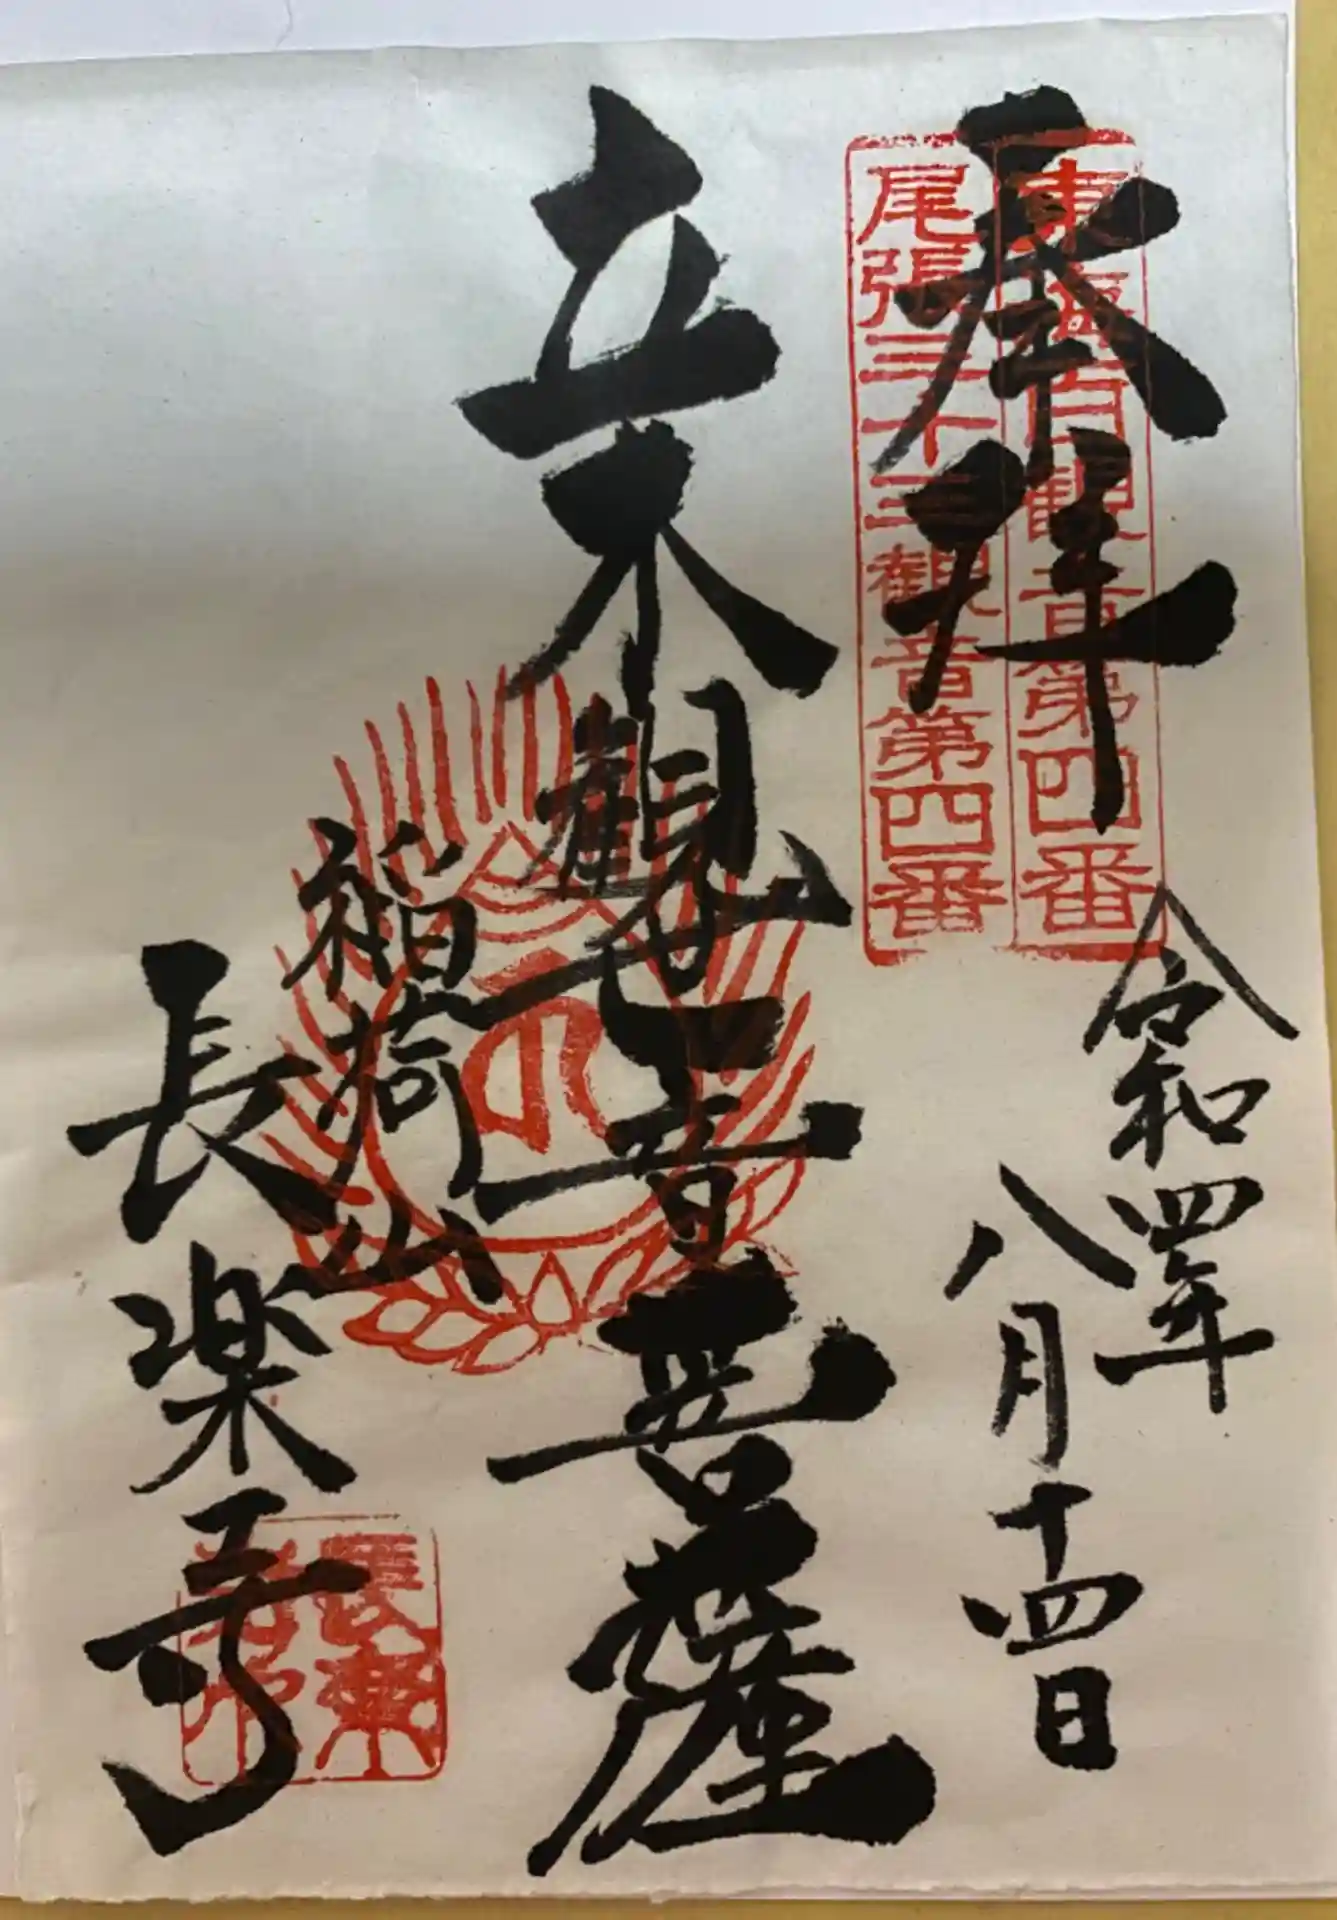 奉拝
東海百観音第四番
尾張三十三観音第四番
令和四年
八月十四日
立木観世音菩薩
稲荷山
長楽寺
長楽
寺印